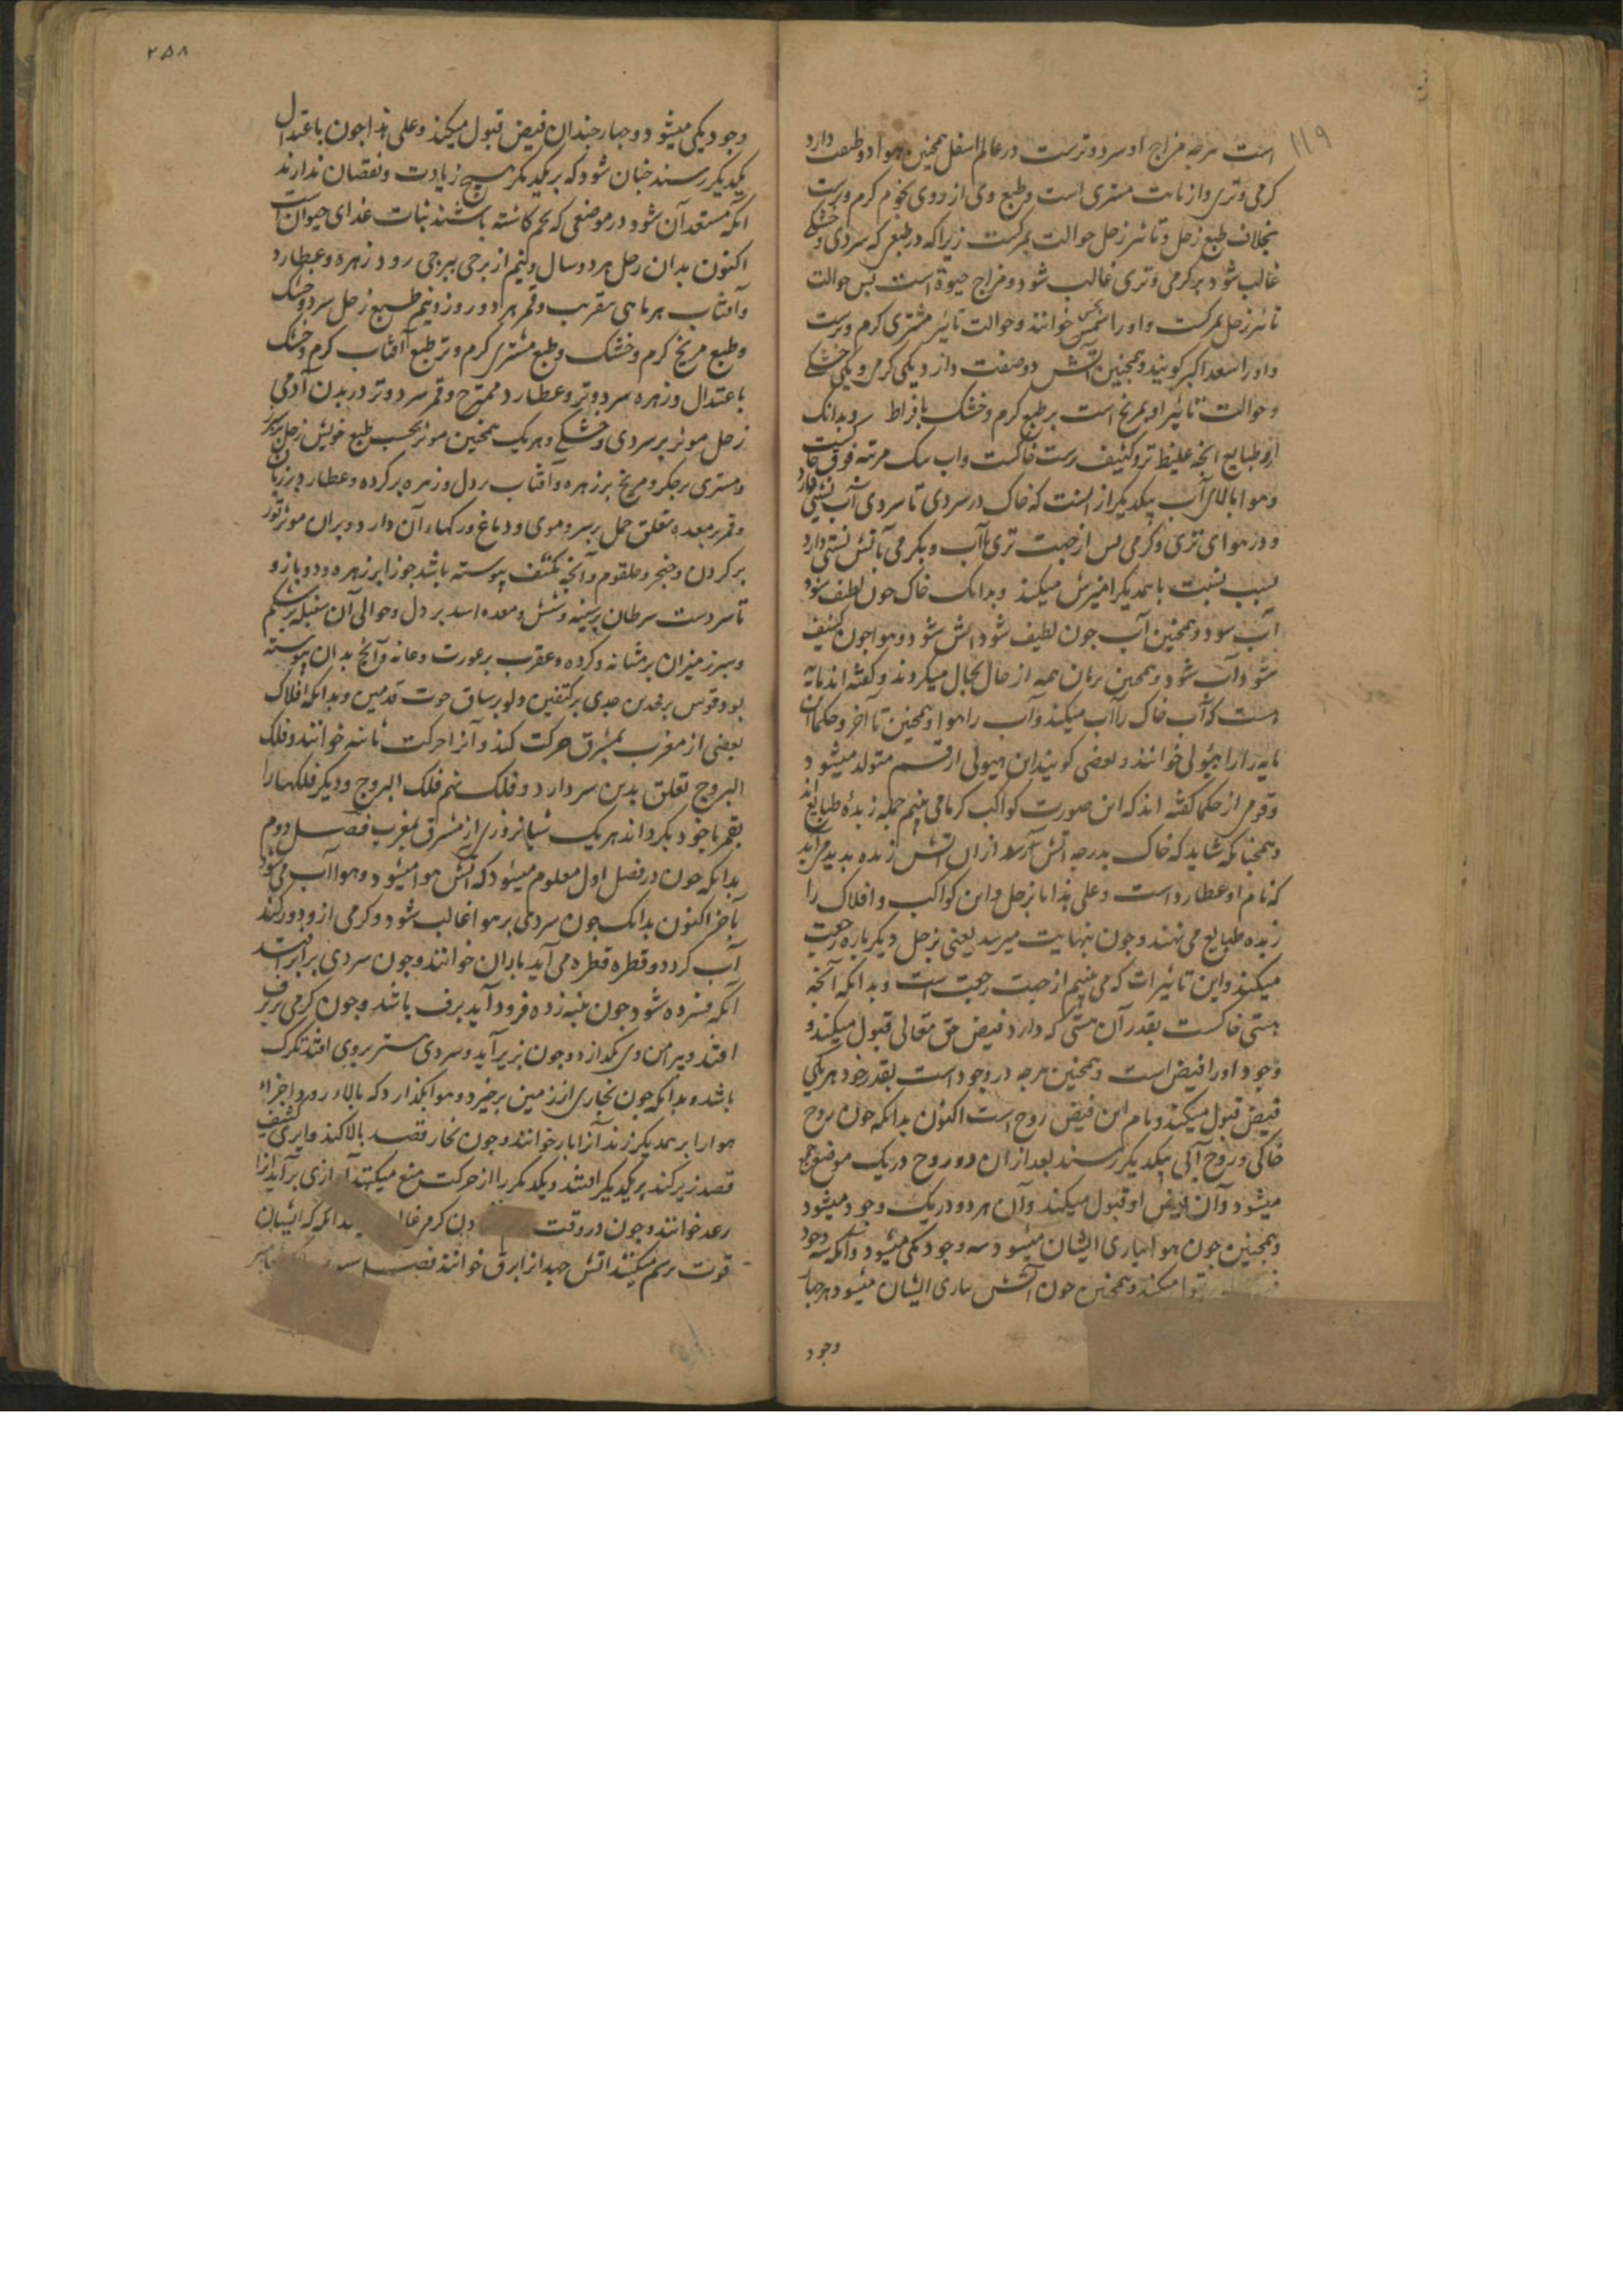 ۱۱۹
است هرچه مزاج او سرد و ترست در عالم اسفل همچنین هوا دو طبیعت دارد
کرمی و تری و از نابت مشتری است و طبع وی از روی نجوم کرم و ترست
بخلاف طبع زحل و تاثیر زحل حوالت بمرکست زیرا که در طبعی که سردی و خشکی
غالب شود بر کرمی و تری غالب شود و مزاج حیوة است پس حوالت
تاثیر زحل بمرکست و او را نحس خوانند و حوالت تاثیر مشتری کرم و ترست
و او را سعد اکبر کویند و همچنین آتش دو صفت دارد یکی کرمی و یکی خشکی
و حوالت تاثیر او بمریخ است بر طبع کرم و خشک بافراط و بدانک
از طبایع آنچه غلیظ تر و کثیف ترست خاکست و آب یک مرتبه فوق خاکست
و هوا بالای آب بیکدیکر از آنست که خاک در سردی تا سردی آب نسبتی دارد
و در هوای تری و کرمی پس از جهت تری با آب و بکرمی با آتش نسبتی دارد
بسبب نسبت با همدیکر امیزش میکنند و بدانک خاک چون لطیف شود
آب شود و همچنین آب چون لطیف شود آتش شود و هوا چون کثیف
شود آب شود و همچنین برمان همه از حال بحال میکردند و کفته اند مایه
هست که آب خاک را آب میکند و آب را هوا و همچنین تا آخر و حکما آن
مایه را هیولی خوانند و بعضی کویند این هیولی از قسم متولد میشود
و قومی از حکما کفته اند که این صورت کواکب که ما می بینیم جمله زبده طبایع اند
و همچنانکه شاید که خاک بدرجه آتش رسد از آن آتش زبده پدید می آید
که نام او عطاردست و علی هذا تا بزحل و این کواکب و افلاک را
زبده طبایع می نهند و چون بنهایت میرسد یعنی بزحل دیکر باره رجعت
میکنند و این تاثیرات که می بینیم از جهت رجعت است و بدانکه آنچه
هستی خاکست بقدر آن هستی که دارد فیض حق تعالی قبول میکند و
وجود او را فیض است و همچنین هرچه در وجودست بقدر خود هر یکی
فیض قبول میکند و نام این فیض روح است اکنون بدانکه چون روح
خاکی و روح آبی بیکدیکر رسند بعد از آن دو روح در یک موضع جمع
میشود و آن فیض او قبول میکند و آن هر دو در یک وجود میشود
و همچنین چون هوا بیاری ایشان میشود سه وجود یکی میشود و آنکه سه وجود
میکند و همچنین چون آتش بیاری ایشان میشود هر چهار
وجود
۲۵۸
وجود یکی میشود و چهار چندان فیض قبول میکند و علی هذا چون باعتدال
یکدیکر رسند چنان شود که بر یکدیکر هیچ زیادت و نقصان ندارند
آنکه مستعد آن شود در موضعی که تخم کاشته باشند نبات غذای حیوان است
اکنون بدان زحل هر دو سال و نیم از برجی ببرجی رود زهره و عطارد
و آفتاب هر ماهی بتقریب و قمر هر دو روز و نیم طبع زحل سرد و خشک
و طبع مریخ کرم و خشک و طبع مشتری کرم و تر طبع آفتاب کرم و خشک
باعتدال و زهره سرد و تر و عطارد ممتزج و قمر سرد و تر در بدن آدمی
زحل موثر بر سردی و خشکی و هر یک همچنین موثر بحسب طبع خویش زحل بر سپرز
و مشتری بر جکر و مریخ بر زهره و آفتاب بر دل و زهره بر کرده و عطارد بر زبان
و قمر بر معده متعلق حمل بر سر و موی و دماغ و رکهاء آن دارد و بران موثر ثور
بر کردن و حنجر و حلقوم و آنچه بکتف پیوسته باشد جوزا بر زهره و دو بازو
تا سر دست سرطان بر سینه و شش و معده اسد بر دل و حوالی آن سنبله بر شکم
و سپرز میزان بر مثانه و کرده و عقرب بر عورت و عانه و آنچ بدان پیوسته
بود و قوس بر فخذین جدی بر کتفین و دلو بر ساق حوت قدمین و بدانکه افلاک
بعضی از مغرب بمشرق حرکت کند و آنرا حرکت ثانیه خوانند و فلک
البروج تعلق بدین سر دارد و فلک نهم فلک البروج و دیکر فلکها را
بقهر با خود بکرداند هر یک شبانروزی از مشرق بمغرب فصل دوم
بدانکه چون در فصل اول معلوم میشود که آتش هوا میشود و هوا آب می شود
تا آخر اکنون بدانک چون سردی بر هوا غالب شود و کرمی ازو دور کند
آب کردد و قطره قطره می آید باران خوانند و چون سردی برابر افتد
آنکه فسرده شود چون پنبه زده فرود آید برف باشد و چون کرمی بر برف
افتد و پیرامن وی بکدازد و چون بزیر آید و سردی بیشتر بروی افتد تکرک
باشد و بدانکه چون بخاری از زمین برخیزد و هوا بکذارد که بالا رود اجزاء
هوا را بر همدیکر زند آنرا ابر خوانند و چون بخار قصد بالا کند و ابری کثیف
قصد زیر کند بر یکدیکر افتند و یکدیکر را از حرکت منع میکنند آوازی برآید آنرا
رعد خوانند و چون در وقت دن کرمی بدانکه که ایشان
قوت برهم میکنند آتش جهد آنرا برق خوانند فصل